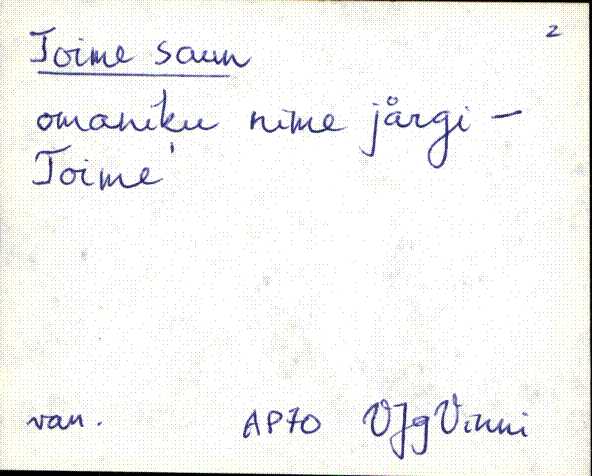 2
Toime saun
omaniku nime järgi –
Toime'
van. AP70 VJg Vinni